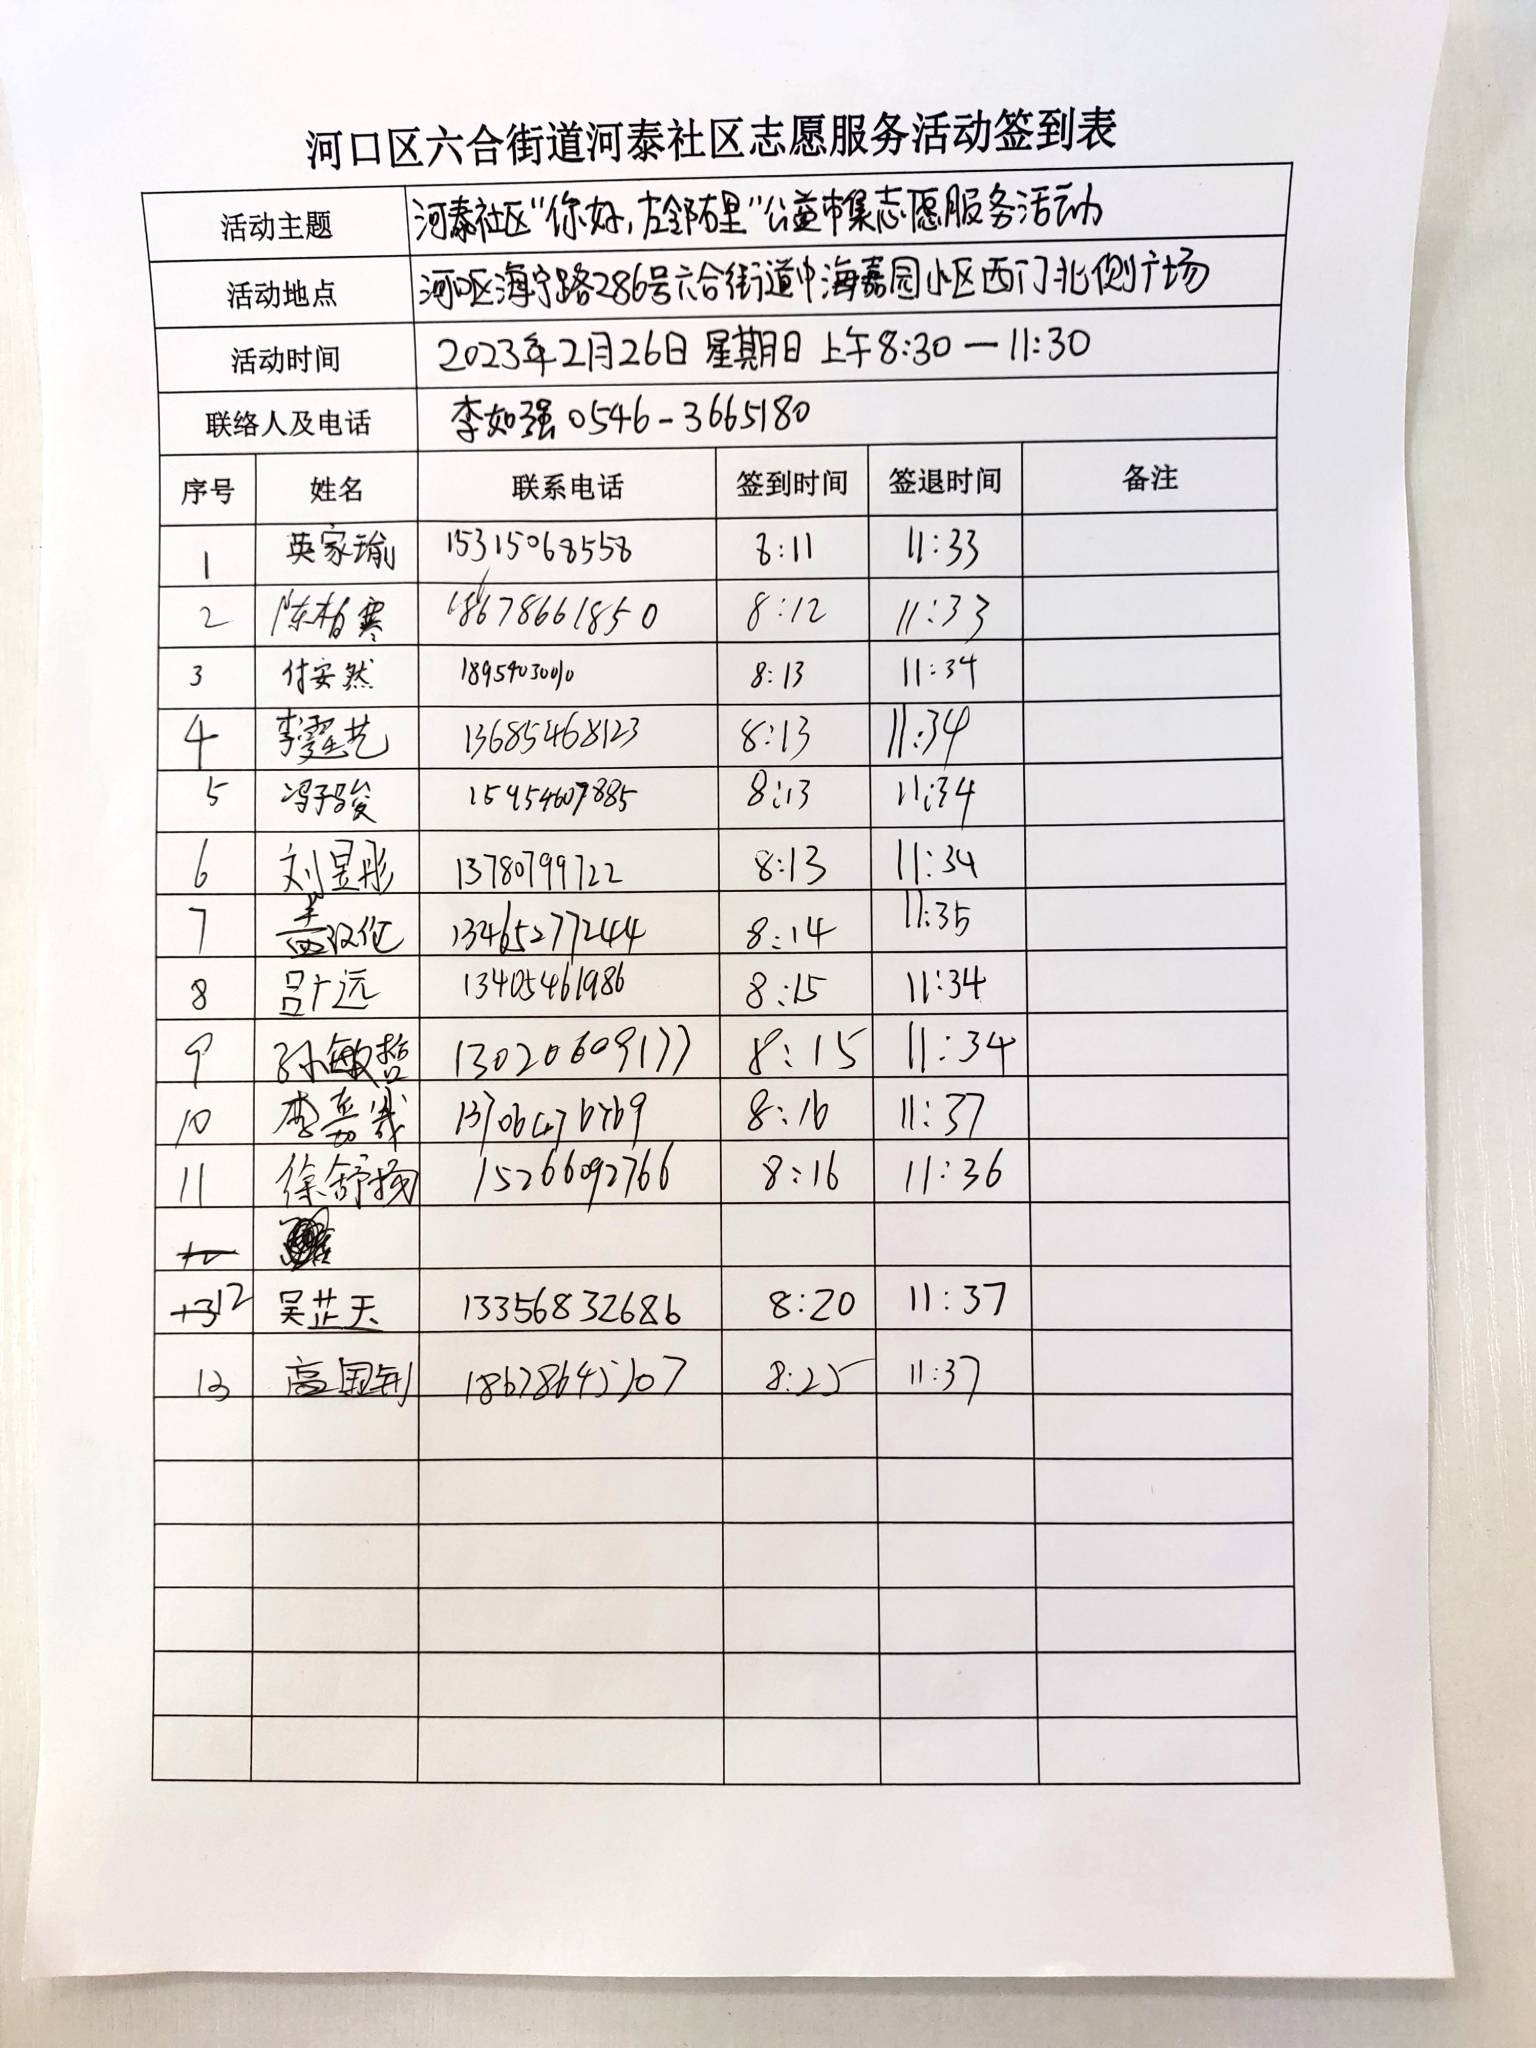 河口区六合街道河泰社区志愿服务活动签到表
活动主题 河泰社区"你好,左邻右里"公益市集志愿服务活动
活动地点 河口区海宁路286号六合街道中海嘉园小区西门北侧广场
活动时间 2023年2月26日 星期日 上午8:30—11:30
联络人及电话 李如强 0546-3665180
序号 姓名 联系电话 签到时间 签退时间 备注
1 英家瑜 15315068558 8:11 11:33
2 陈柏寒 18678661850 8:12 11:33
3 付安然 18954030010 8:13 11:34
4 李霆艺 13685468123 8:13 11:34
5 冯子骏 15954607885 8:13 11:34
6 刘昱彤 13780799722 8:13 11:34
7 盖 13465277244 8:14 11:35
8 吕广远 13405461986 8:15 11:34
9 孙敏哲 13020609177 8:15 11:34
10 李嘉 13706476769 8:16 11:37
11 徐舒扬 15266092766 8:16 11:36
12 吴芷天 13356832686 8:20 11:37
13 高国钊 8:25 11:37